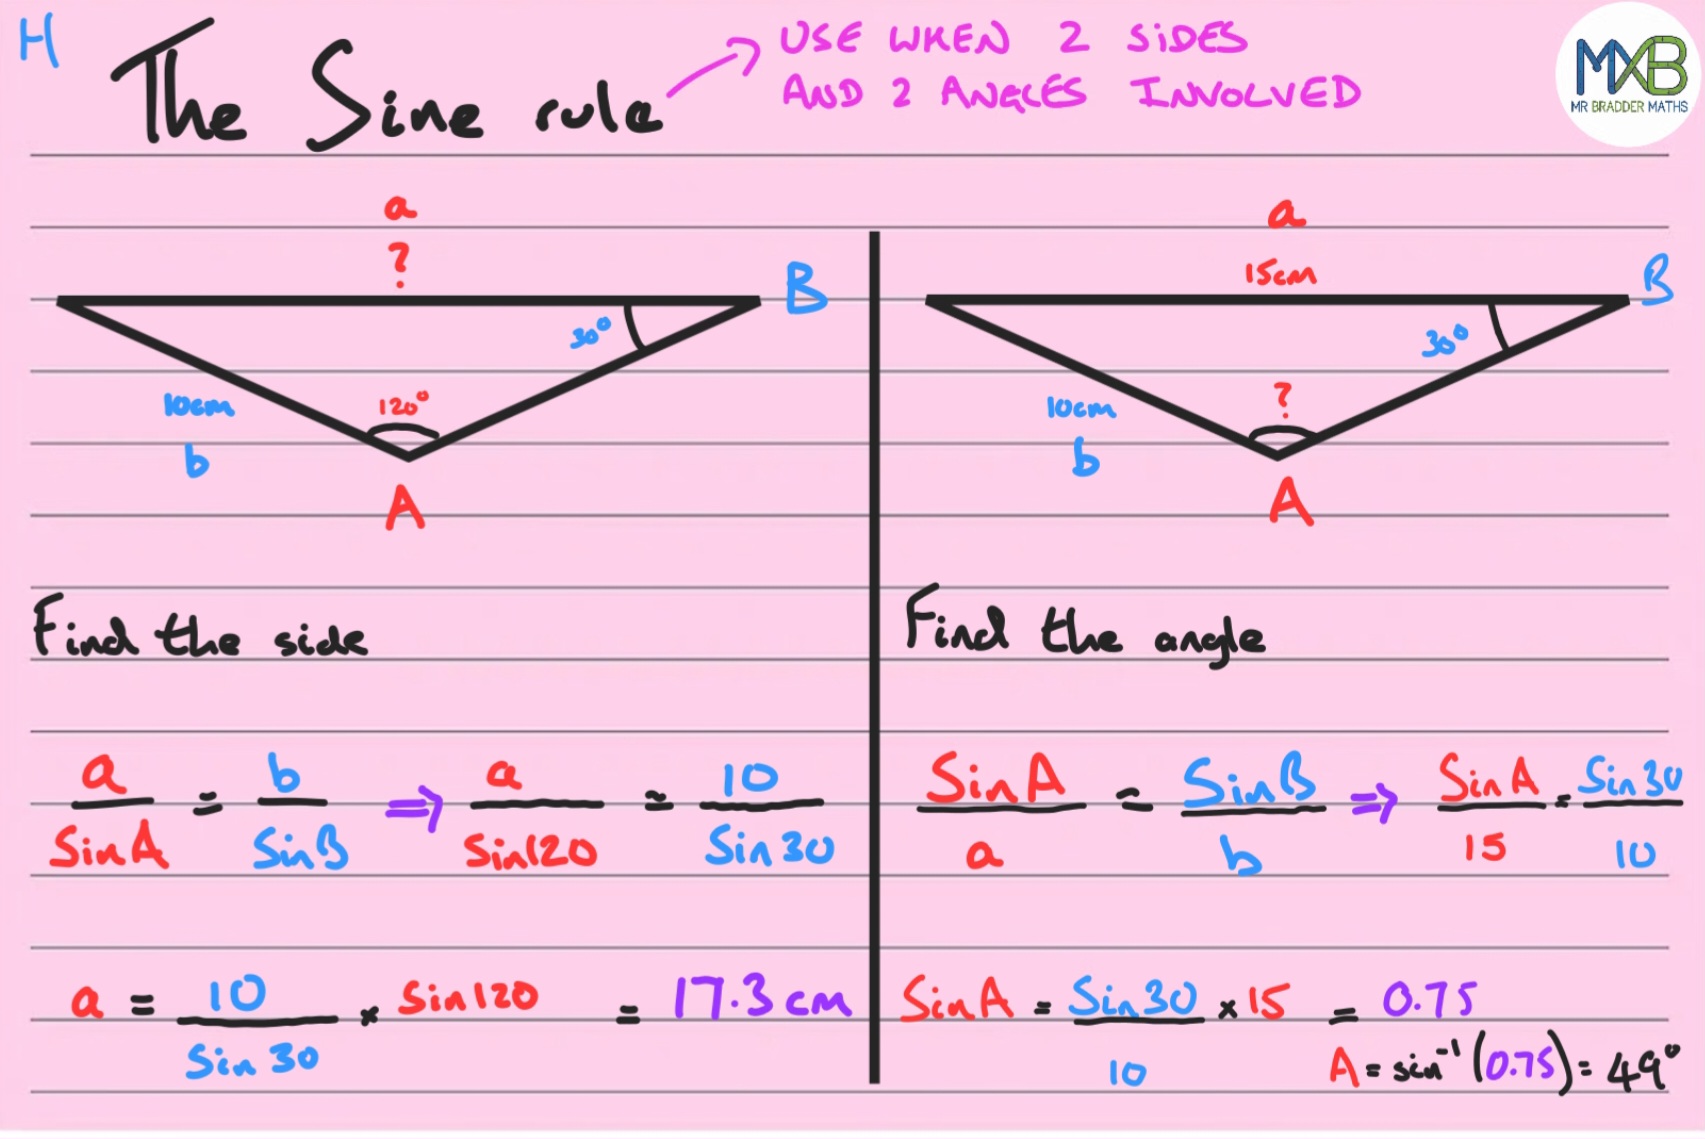 H
The Sine rule
USE WHEN 2 SIDES
AND 2 ANGLES INVOLVED
MXB
MR BRADDER MATHS
a
?
B
30°
10cm
120°
b
A
Find the side
a/SinA = b/SinB ⇒ a/Sin120 = 10/Sin30
a = 10/Sin30 × Sin120 = 17.3cm
a
15cm
B
30°
10cm
?
b
A
Find the angle
SinA/a = SinB/b ⇒ SinA/15 = Sin30/10
SinA = Sin30/10 × 15 = 0.75
A = sin⁻¹(0.75) = 49°